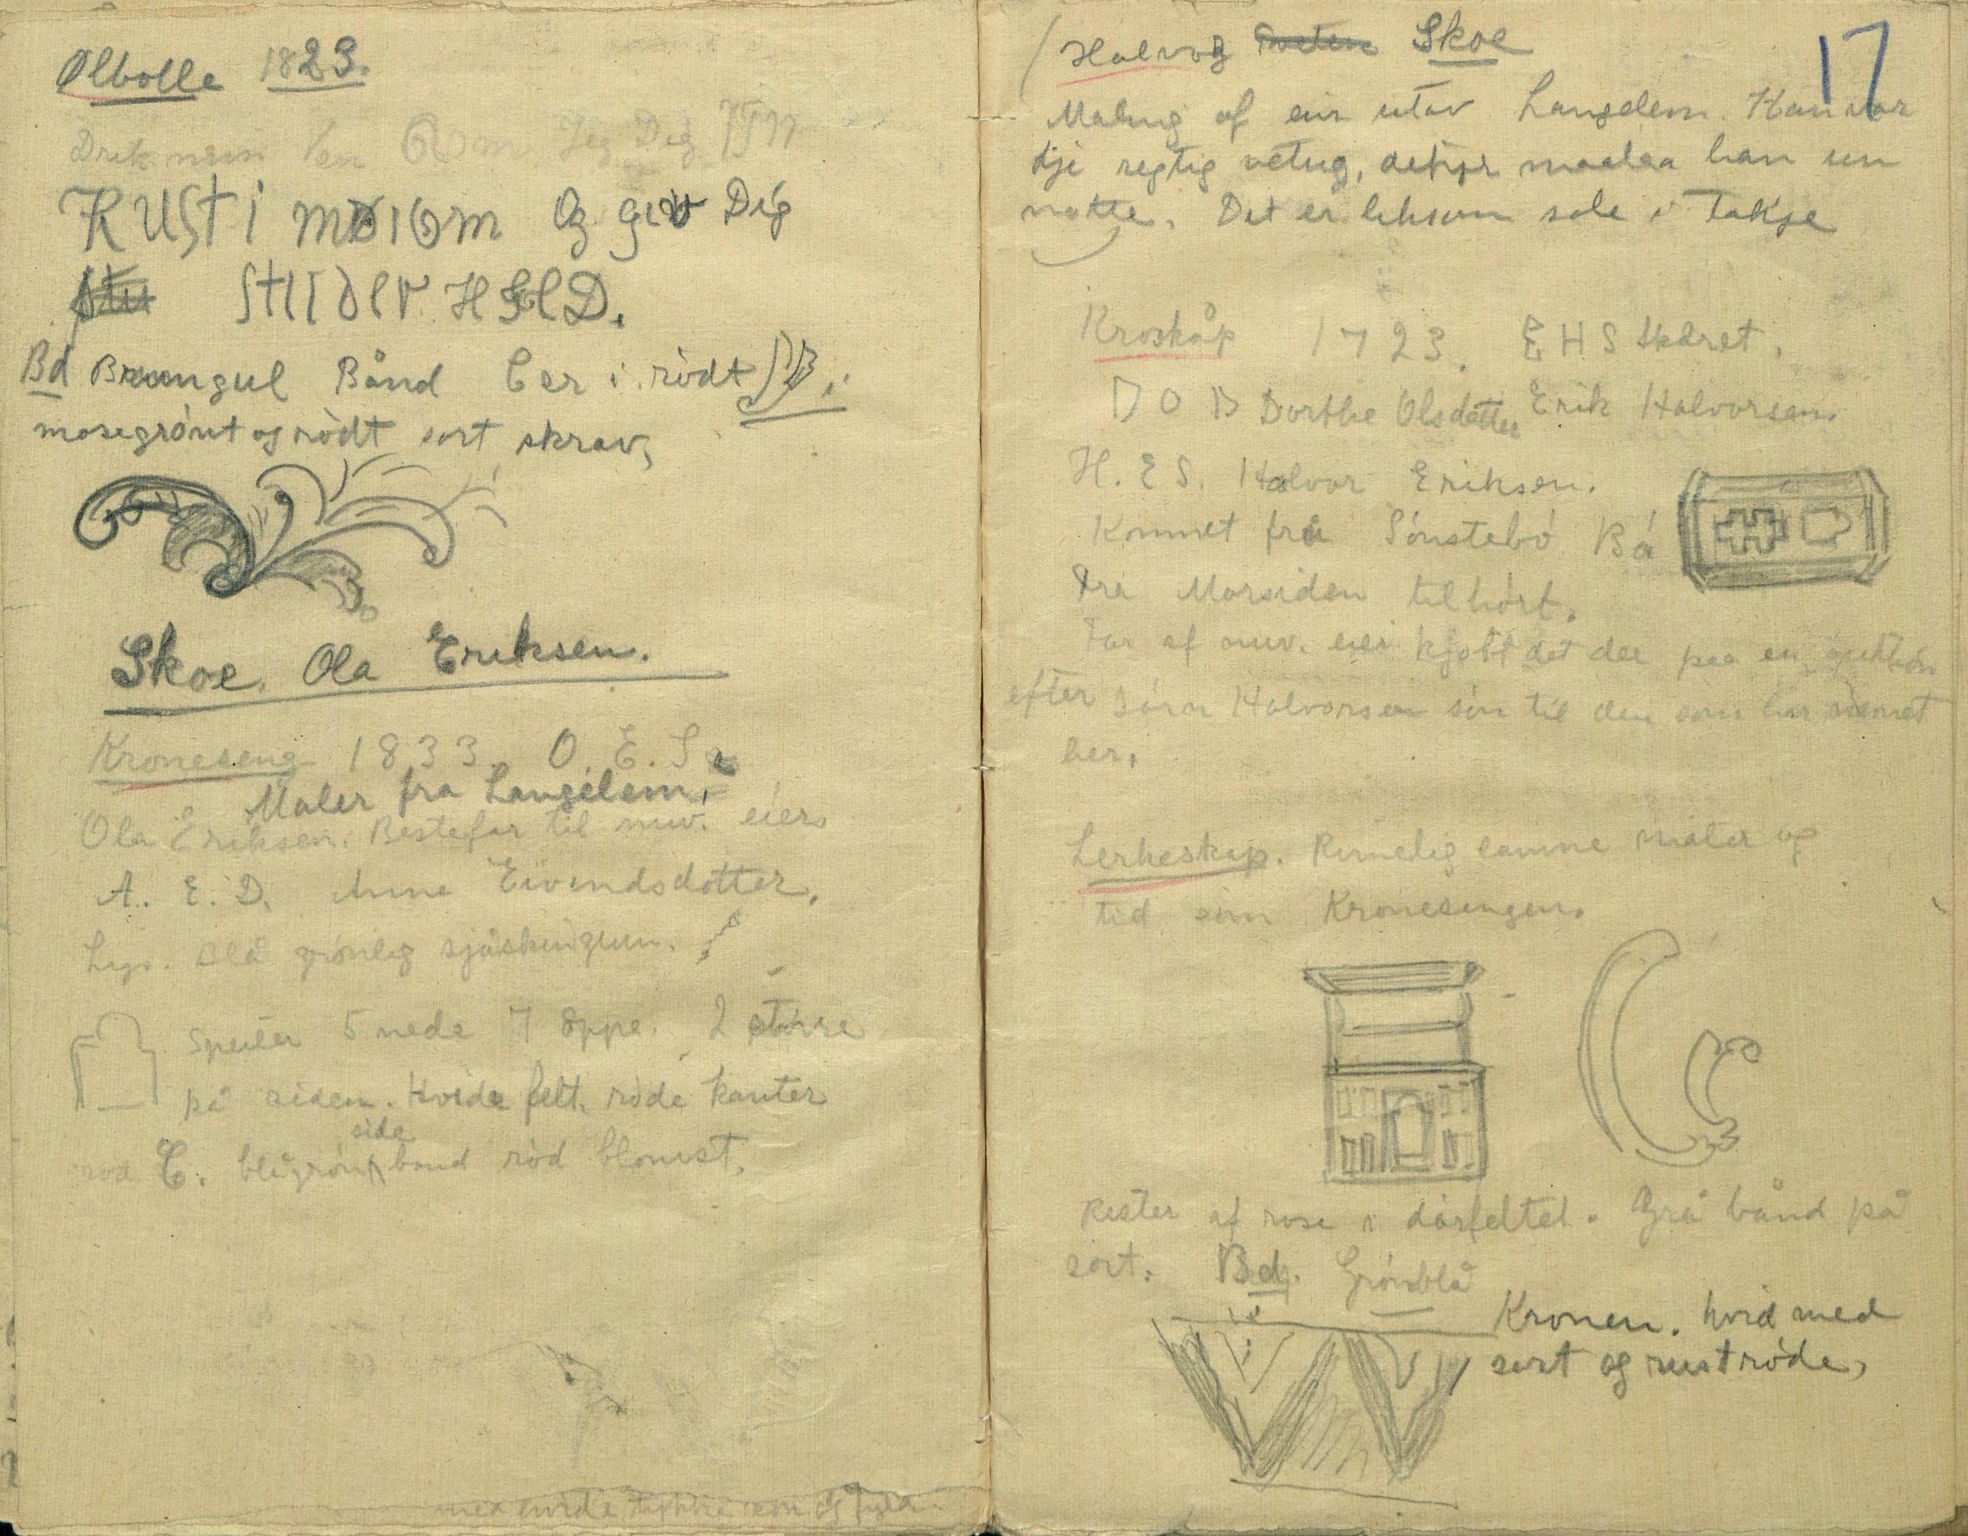 Ølbolle 1823.
Drik min Ven Jeg Dig
KUSt i Og giv Dig
StIIDER HElD.
Bd Brungul Bånd C er i rødt
mosegrønt og rødt sort skrav,
Skoe. Ola Eriksen.
Kroneseng 1833. O. E. S.
Maler fra Langelem,
Ola Eriksen. Bestefar til nuv. eier.
A. E. D. Anne Eivendsdotter.
Lys. blå grønlig
Speiler 5 nede 7 oppe. 2 større
på siden. Hvide felt. røde kanter
side
rød C. blågrønt bånd rød blomst.
17
Halvor Skoe
Malug af ein utav Langelem. Han var
ikje regtig maalaa han um
natte. Det er liksom sole i Takje
Kroskåp 1723. EHS Skåret.
D O D Dorthe Olsdatter Erik Halvorsen.
H. E S. Halvor Eriksen.
Kommet fra Sønstebø Bø
Fra Morsiden tilhørt.
Far af nuv. eier kjøbt det der paa en auktion
efter Halvorsen søn til den som
her.
Lerkeskap. Rimelig samme maler og
tid som Kronesengen.
Rester af rose i dørfeltet. Grå bånd på
sort. Bd. Grønblå
Kronen. hvid med
sort og rustrøde,